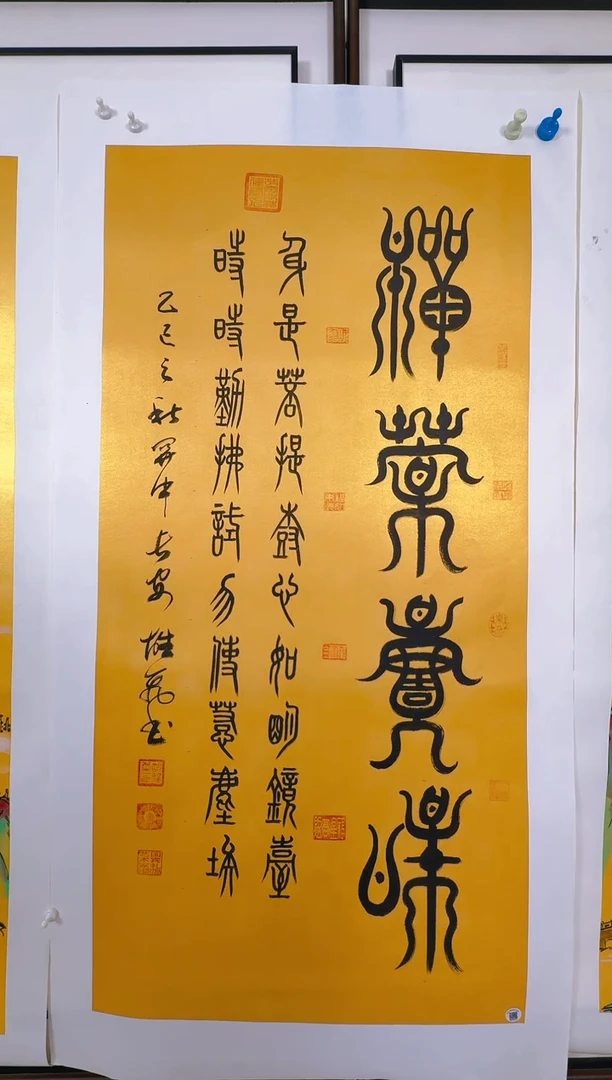 禪茶壹味
身是菩提樹心如明鏡臺
時時勤拂試勿使惹塵埃
乙巳之秋関中長安雄書